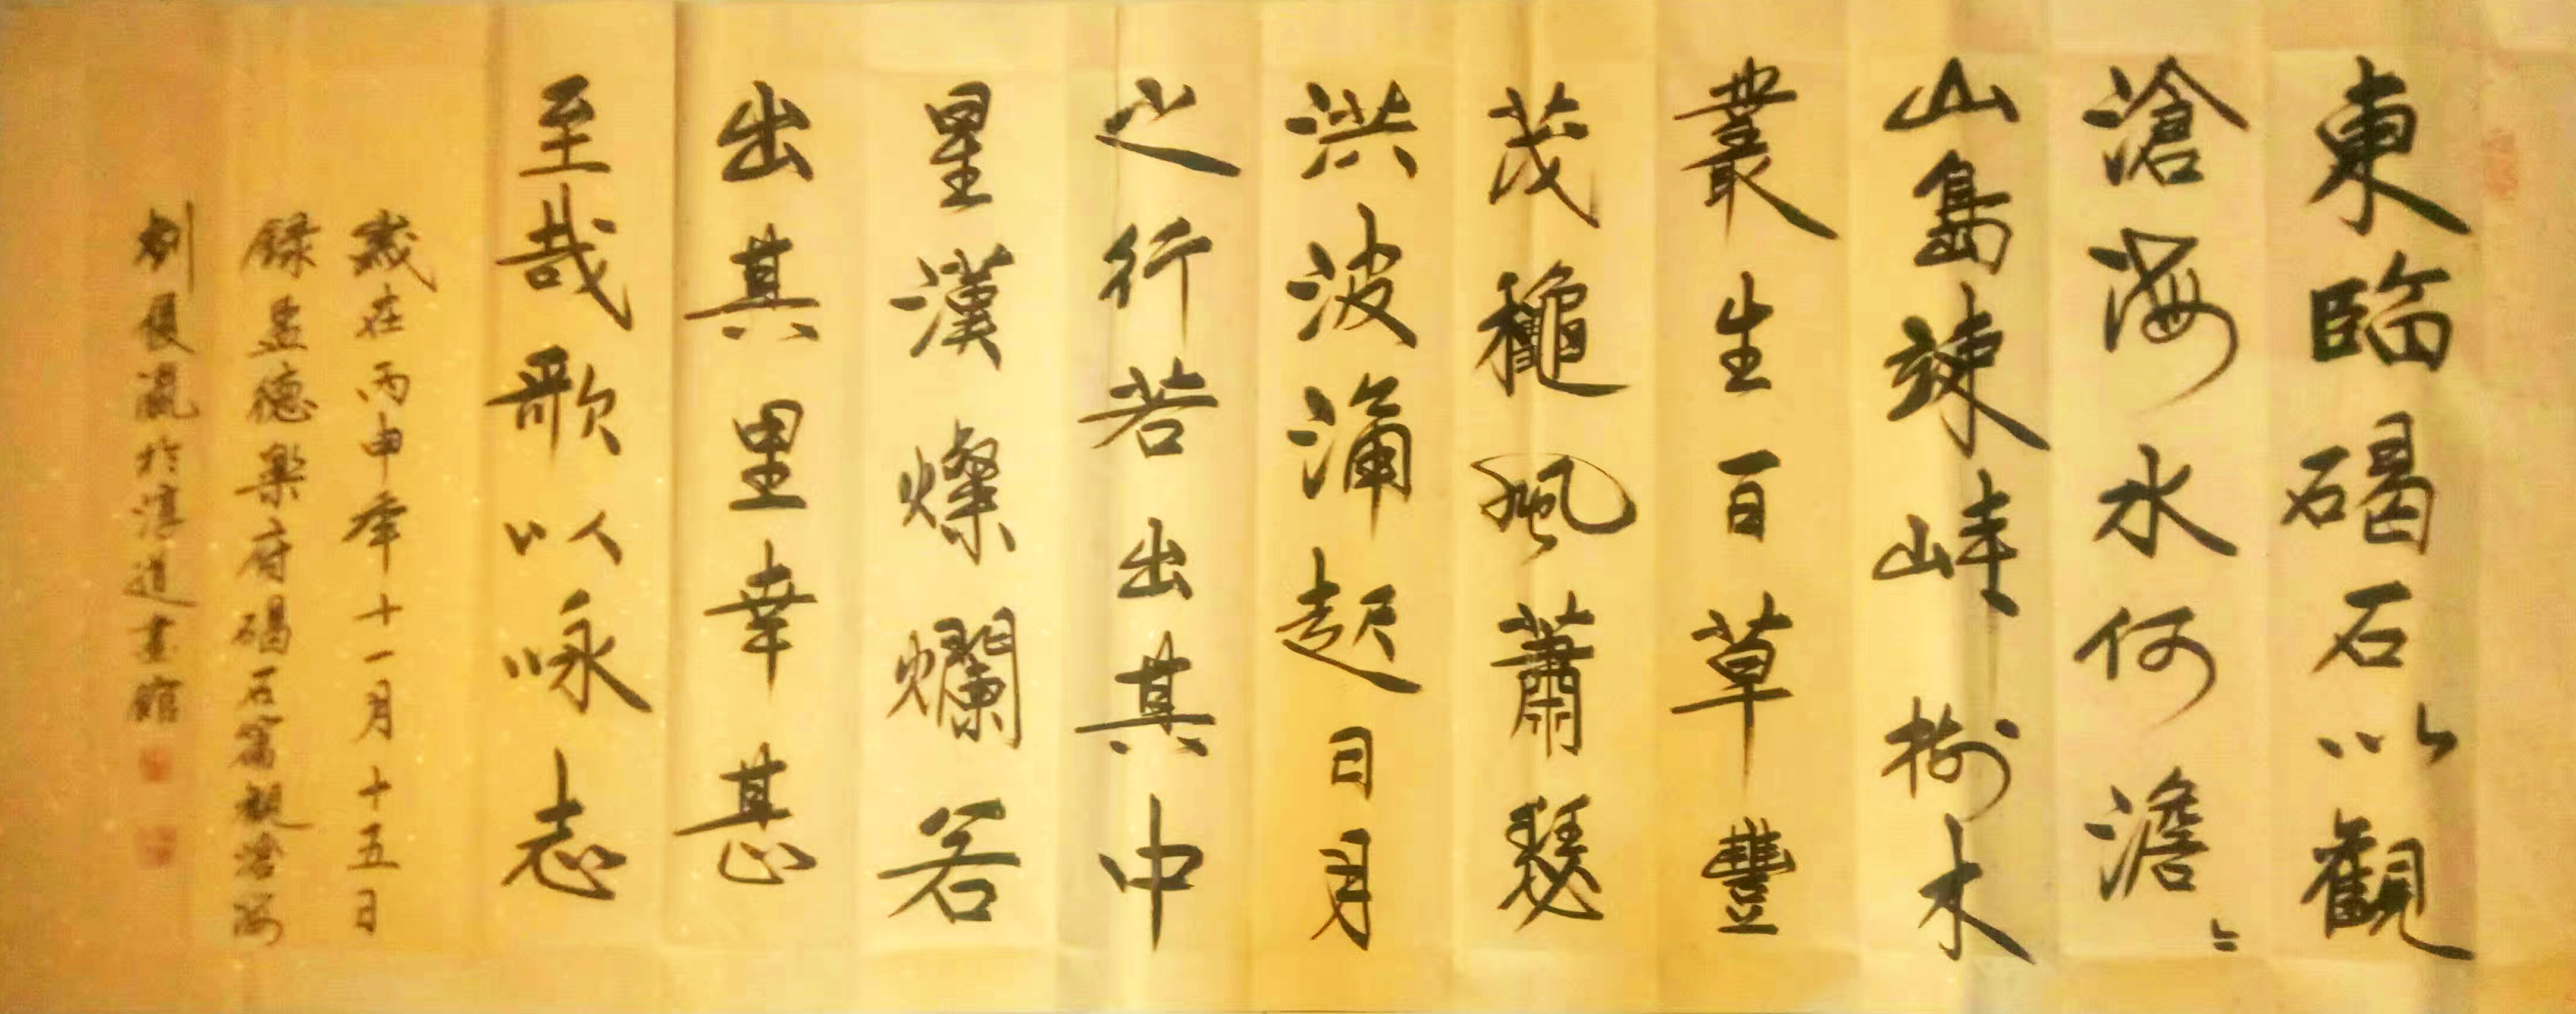 東臨碣石以觀
滄海水何澹〻
山島竦峙樹木
叢生百草豐
茂龝風蕭瑟
洪波涌起日月
之行若出其中
星漢燦爛若
出其里幸甚
至哉歌以咏志
歲在丙申年十一月十五日
錄孟德樂府碣石篇觀滄海
於淳道書館